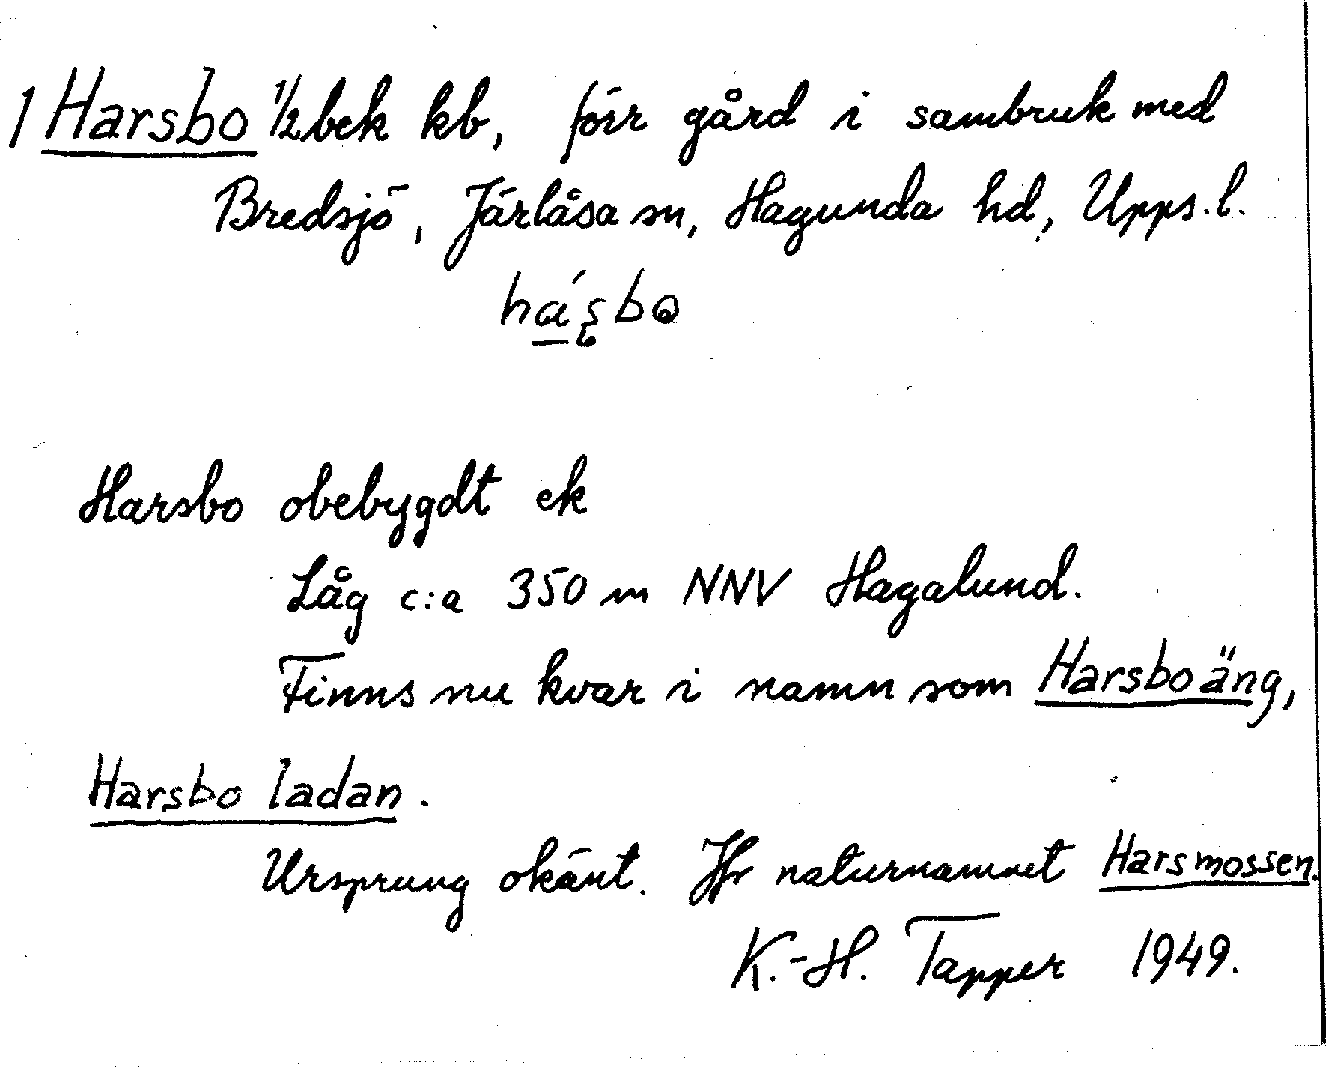 1 Harsbo 1/2 bek kb, förr gård i sambruk med
Bredsjö, Järlåsa sn, Hagunda hd, Upps. l.
Harsbo obebygdt ek
Låg c:a 350 m NNV Hagalund.
Finns nu kvar i namn som Harsboäng,
Harsbo ladan.
Ursprung okänt. Jfr naturnamnet Harsmossen.
K.-H. Tapper 1949.